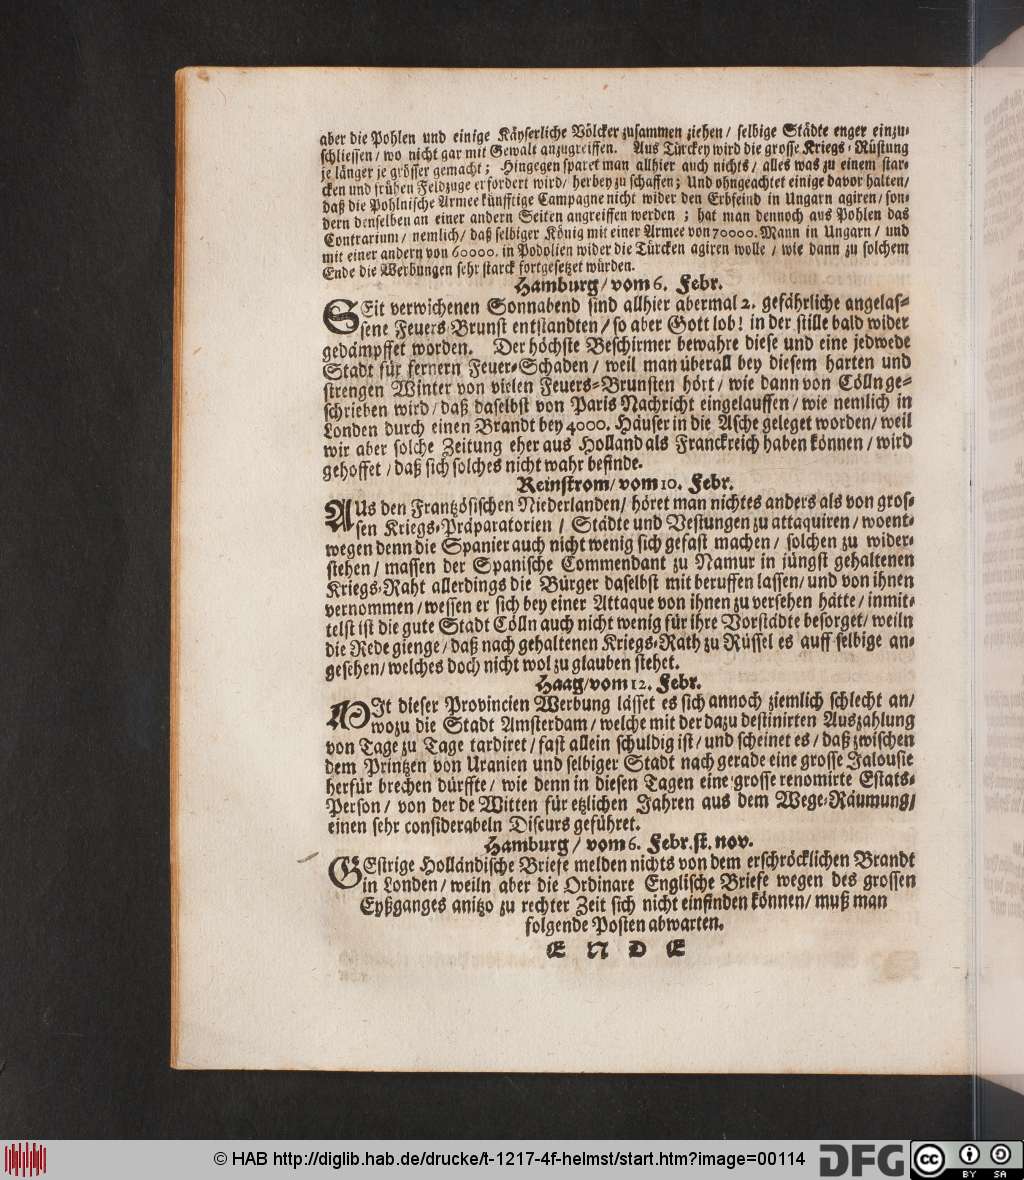 aber die Pohlen und einige Käyserliche Völcker zusammen ziehen / selbige Städte enger einzu-
schliessen / wo nicht gar mit Gewalt anzugreiffen. Aus Türckey wird die grosse Kriegs-Rüstung
je länger je grösser gemacht; Hingegen sparet man allhier auch nichts / alles was zu einem star-
cken und frühen Feldzuge erfordert wird / herbey zu schaffen; Und ohngeachtet einige davor halten /
daß die Pohlnische Armee künfftige Campagne nicht wider den Erbfeind in Ungarn agiren / son-
dern denselben an einer andern Seiten angreiffen werden ; hat man dennoch aus Pohlen das
Contrarium / nemlich / daß selbiger König mit einer Armee von 70000. Mann in Ungarn / und
mit einer andern von 60000. in Podolien wider die Türcken agiren wolle / wie dann zu solchem
Ende die Werbungen sehr starck fortgesetzet würden.
Hamburg / vom 6. Febr.
SEit verwichenen Sonnabend sind allhier abermal 2. gefährliche angelas-
sene Feuers-Brunst entstandten / so aber Gott lob! in der stille bald wider
gedämpffet worden. Der höchste Beschirmer bewahre diese und eine jedwede
Stadt für fernern Feuer-Schaden / weil man überall bey diesem harten und
strengen Winter von vielen Feuers-Brunsten hört / wie dann von Cölln ge-
schrieben wird / daß daselbst von Paris Nachricht eingelauffen / wie nemlich in
Londen durch einen Brandt bey 4000. Häuser in die Asche geleget worden / weil
wir aber solche Zeitung eher aus Holland als Franckreich haben können / wird
gehoffet / daß sich solches nicht wahr befinde.
Reinstrom / vom 10. Febr.
AUs den Frantzösischen Niederlanden / höret man nichtes anders als von gros-
sen Kriegs-Präparatorien / Städte und Vestungen zu attaquiren / woent-
wegen denn die Spanier auch nicht wenig sich gefast machen / solchen zu wider-
stehen / massen der Spanische Commendant zu Namur in jüngst gehaltenen
Kriegs-Raht allerdings die Bürger daselbst mit beruffen lassen / und von ihnen
vernommen / wessen er sich bey einer Attaque von ihnen zu versehen hätte / inmit-
telst ist die gute Stadt Cölln auch nicht wenig für ihre Vorstädte besorget / weiln
die Rede gienge / daß nach gehaltenen Kriegs-Rath zu Rüssel es auff selbige an-
gesehen / welches doch nicht wol zu glauben stehet.
Haag / vom 12. Febr.
MIt dieser Provincien Werbung lässet es sich annoch ziemlich schlecht an /
wozu die Stadt Amsterdam / welche mit der dazu destinirten Auszahlung
von Tage zu Tage tardiret / fast allein schuldig ist / und scheinet es / daß zwischen
dem Printzen von Uranien und selbiger Stadt nach gerade eine grosse Jalousie
herfür brechen dürffte / wie denn in diesen Tagen eine grosse renomirte Estats-
Person / von der de Witten für etzlichen Jahren aus dem Wege-Räumung /
einen sehr considerabeln Discurs geführet.
Hamburg / vom 6. Febr. st. nov.
GEstrige Holländische Briefe melden nichts von dem erschröcklichen Brandt
in Londen / weiln aber die Ordinare Englische Briefe wegen des grossen
Eyßganges anitzo zu rechter Zeit sich nicht einfinden können / muß man
folgende Posten abwarten.
E N D E
© HAB http://diglib.hab.de/drucke/t-1217-4f-helmst/start.htm?image=00114
DFG
cc BY SA